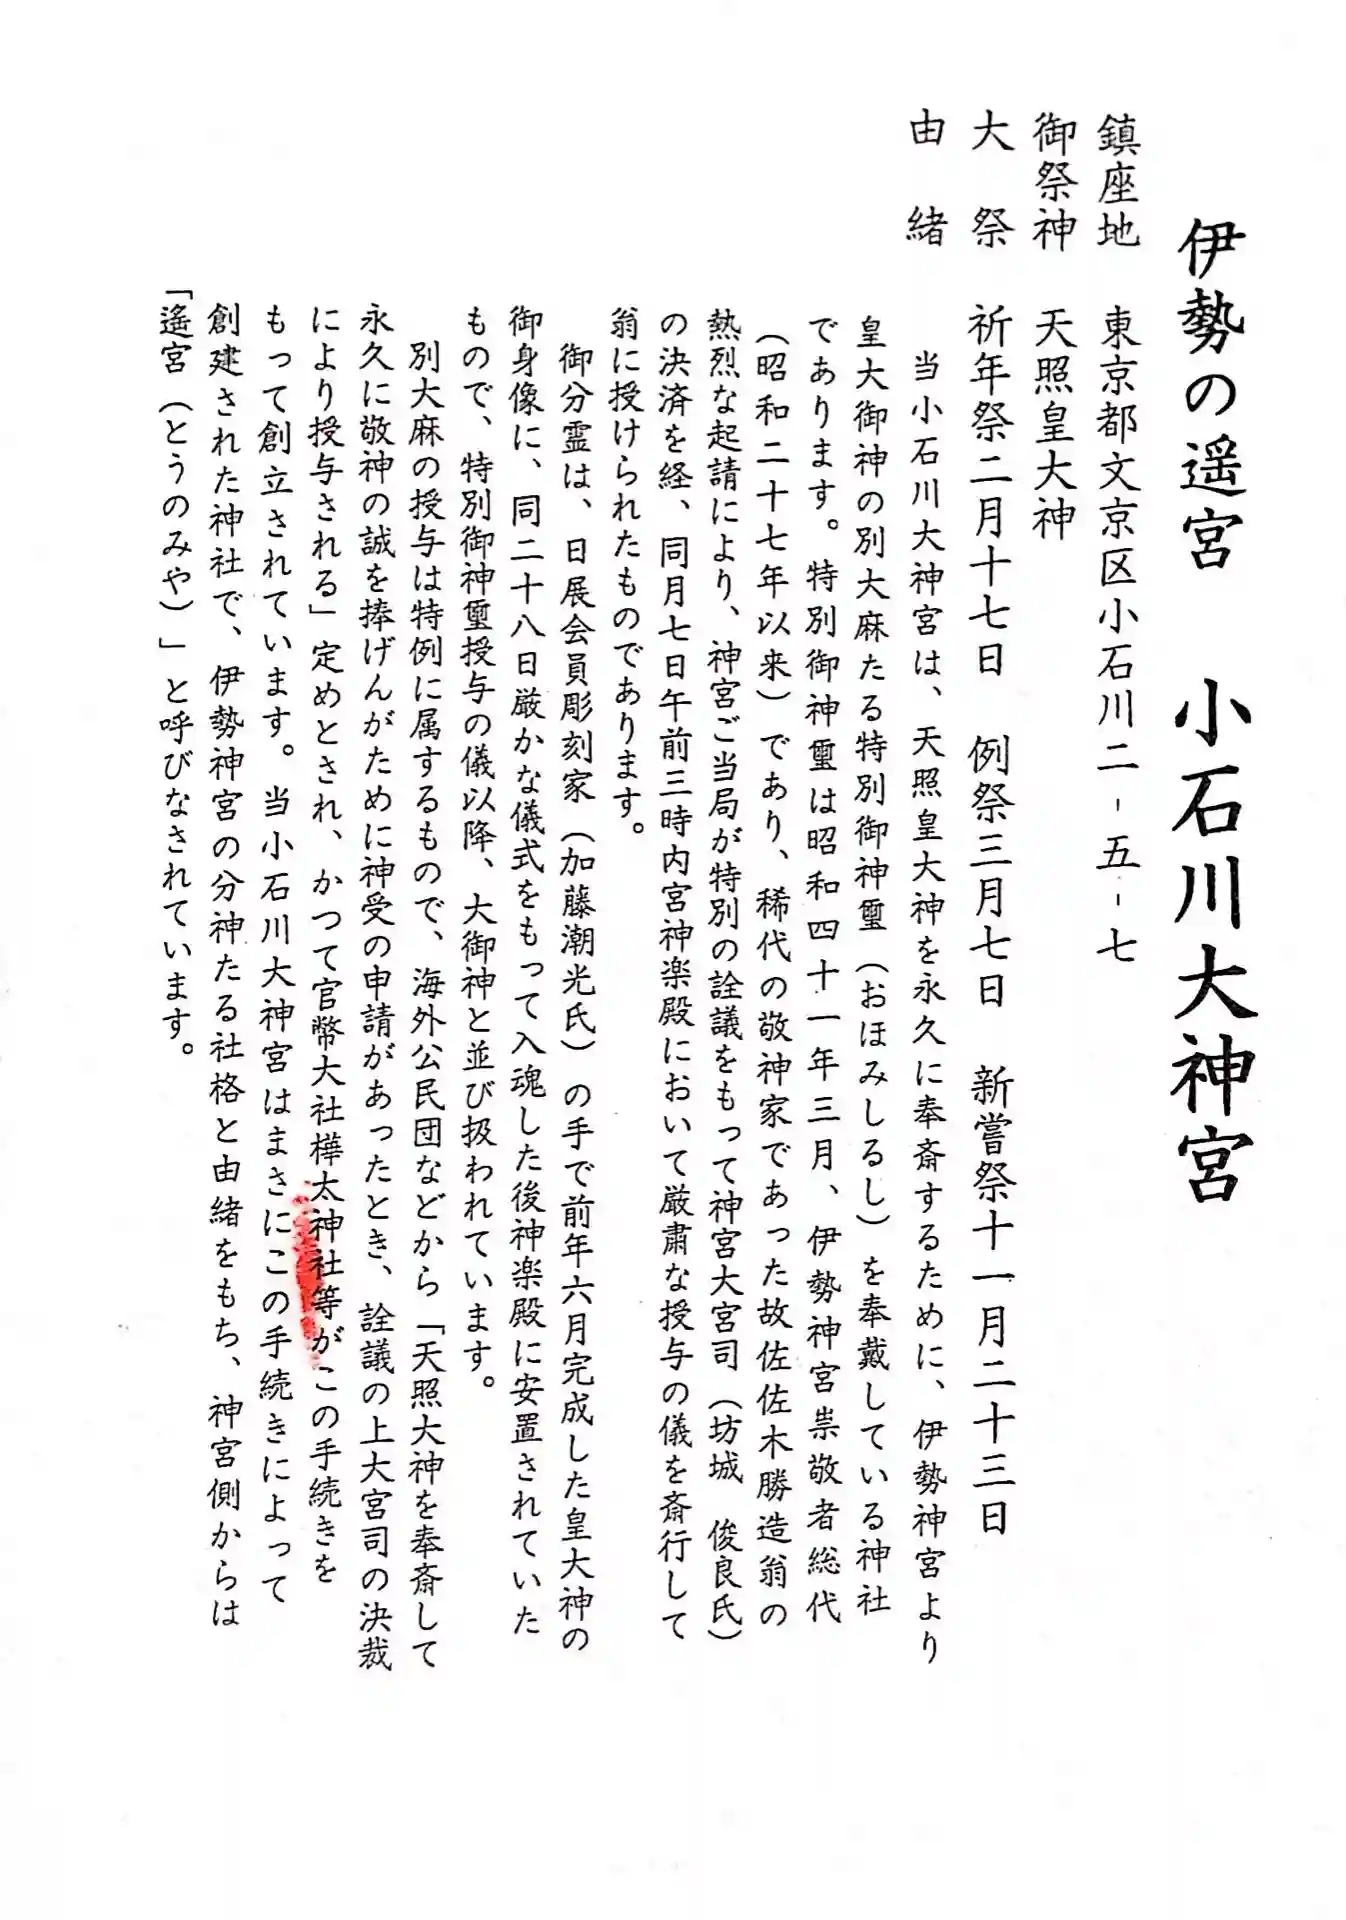 伊勢の遥宮　小石川大神宮
鎮座地　東京都文京区小石川二-五-七
御祭神　天照皇大神
大　祭　祈年祭二月十七日　例祭三月七日　新嘗祭十一月二十三日
由　緒
当小石川大神宮は、天照皇大神を永久に奉斎するために、伊勢神宮より
皇大御神の別大麻たる特別御神璽（おほみしるし）を奉戴している神社
であります。特別御神璽は昭和四十一年三月、伊勢神宮崇敬者総代
（昭和二十七年以来）であり、稀代の敬神家であった故佐佐木勝造翁の
熱烈な起請により、神宮ご当局が特別の詮議をもって神宮大宮司（坊城　俊良氏）
の決済を経、同月七日午前三時内宮神楽殿において厳粛な授与の儀を斎行して
翁に授けられたものであります。
御分霊は、日展会員彫刻家（加藤潮光氏）の手で前年六月完成した皇大神の
御身像に、同二十八日厳かな儀式をもって入魂した後神楽殿に安置されていた
もので、特別御神璽授与の儀以降、大御神と並び扱われています。
別大麻の授与は特例に属するもので、海外公民団などから「天照大神を奉斎して
永久に敬神の誠を捧げんがために神受の申請があったとき、詮議の上大宮司の決裁
により授与される」定めとされ、かつて官幣大社樺太神社等がこの手続きを
もって創立されています。当小石川大神宮はまさにこの手続きによって
創建された神社で、伊勢神宮の分神たる社格と由緒をもち、神宮側からは
「遙宮（とうのみや）」と呼びなされています。